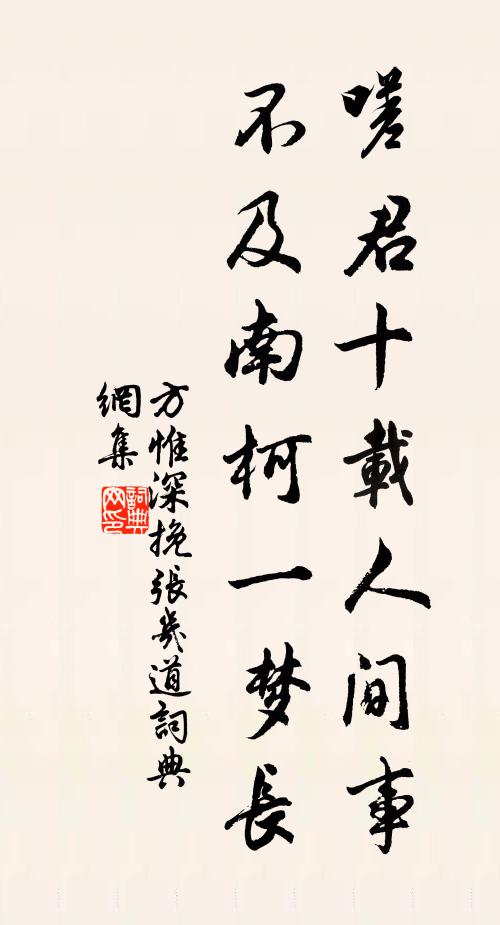 嗟君十載人间事
不及南柯一梦長
方惟深挽張幾道詞典
網集
詞典
网印